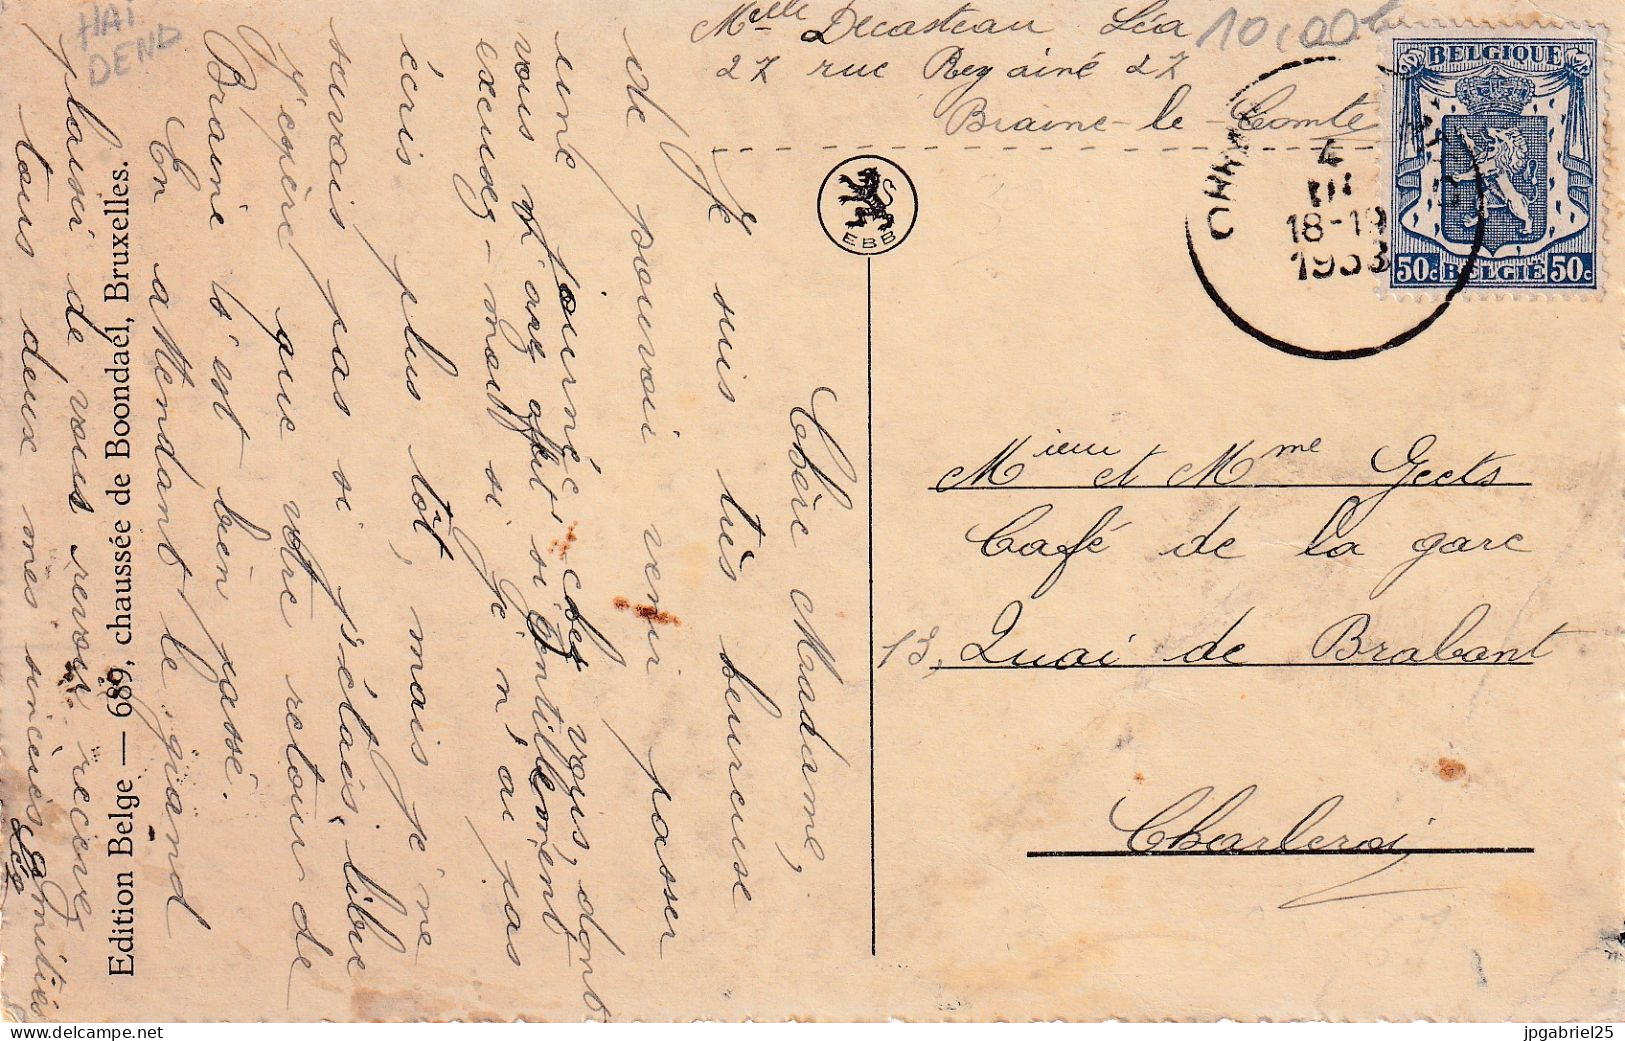 Melle Decasteau Léa
27 rue Rey ainé 27
Braine-le-Comte
10,00
HAI
DEND
BELGIQUE
50c BELGIË 50c
4
III
18-19
1953
EBB
Chère Madame,
Je suis très heureuse
de pouvoir venir passer
une journée chez vous, dont
vous m'avez offert si gentillement
excusez-moi si je n'ai pas
écris plus tôt, mais je ne
savais pas si j'étais libre
J'espère que votre retour de
Braine s'est bien passé.
En attendant le grand
plaisir de vous revoir recevez
tous deux mes sincères amitiés
Léa
Mieur et Mme Geets
Café de la gare
13, Quai de Brabant
Charleroi
Edition Belge — 689, chaussée de Boondael, Bruxelles.
jpgabriel25